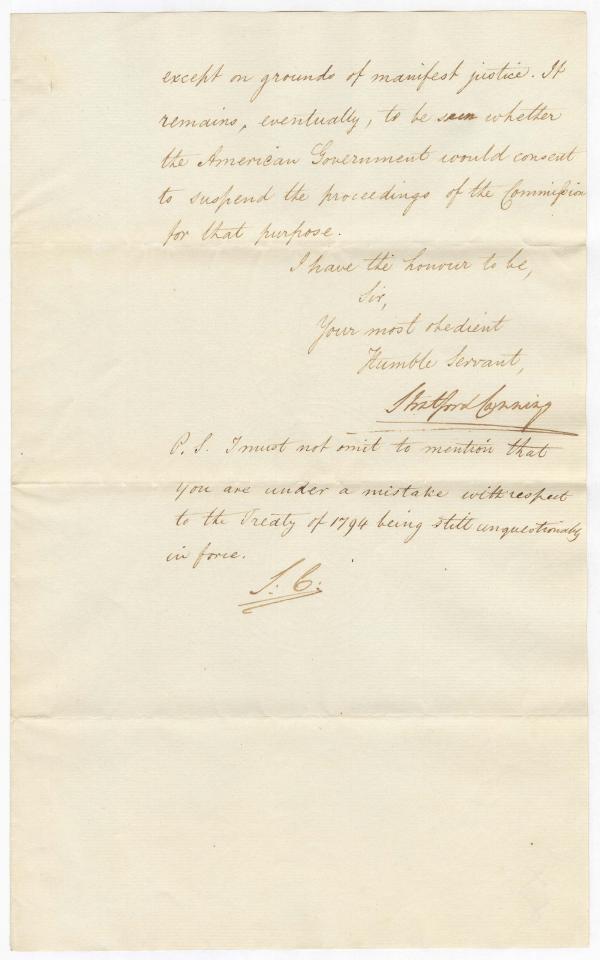 except on grounds of manifest justice. It
remains, eventually, to be seen whether
the American Government would consent
to suspend the proceedings of the Commission
for that purpose.
I have the honour to be,
Sir,
Your most obedient
Humble Servant,
Stratford Canning
P. S. I must not omit to mention that
you are under a mistake with respect
to the Treaty of 1794 being still unquestionably
in force.
S: C: